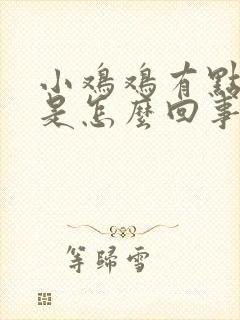 小鸡鸡有點
是怎麼回事
等歸雪